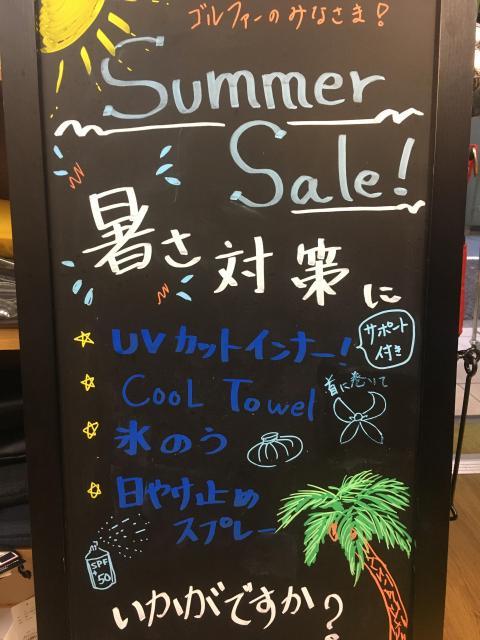 ゴルファーのみなさま!
Summer
Sale!
暑さ対策に
UVカットインナー!
サポート
付き
COOL Towel
首に巻いて
氷のう
日やけ止め
スプレー
SPF
+50
いかがですか?